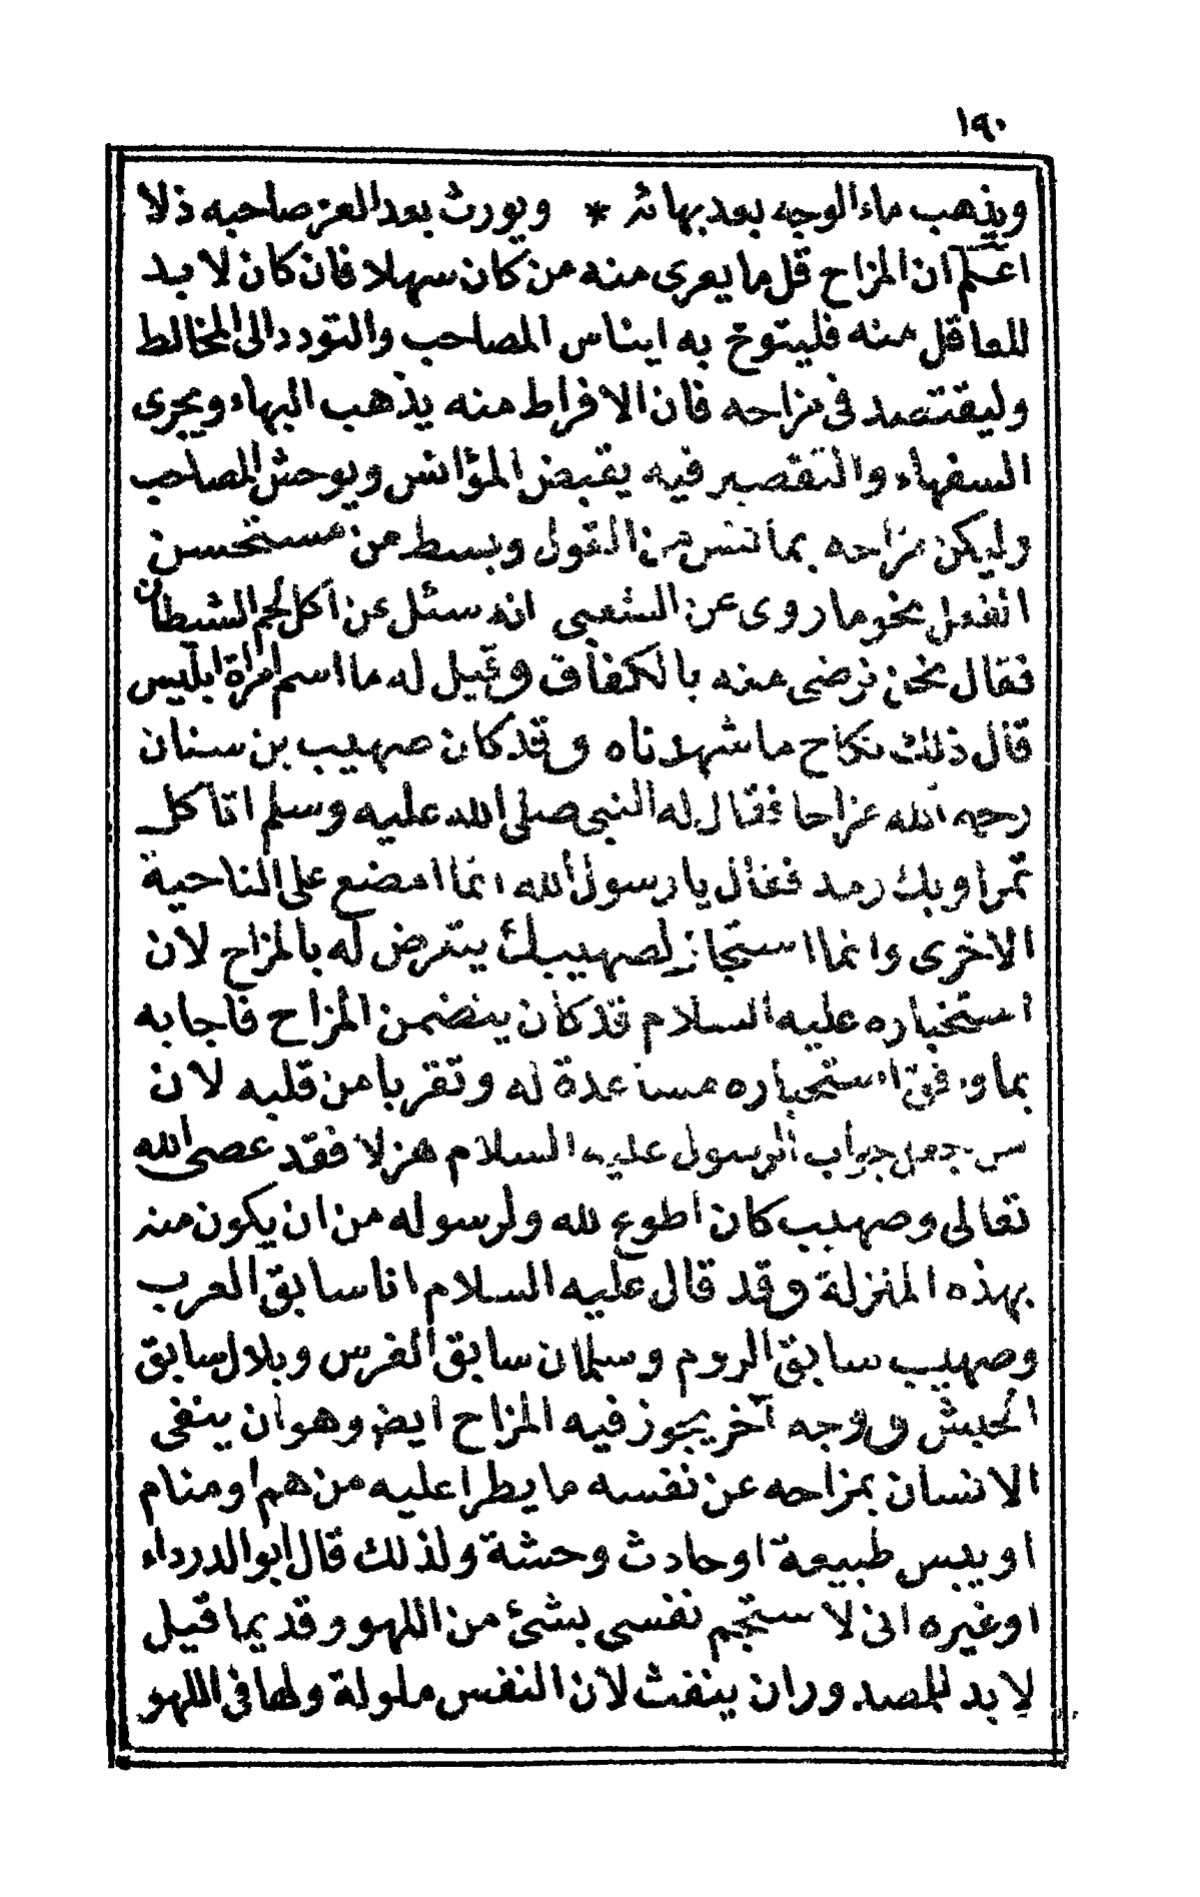 ١٩٠
ويذهب ماء الوجه بعد بهائه * ويورث بعد العز صاحبه ذلا
اعلم ان المزاح قل ما يعرى منه من كان سهلا فان كان لا بد
للعاقل منه فليتوخ به ايناس المصاحب والتودد الى المخالط
وليقتصد فى مزاحه فان الافراط منه يذهب البهاء ويجرى
السفهاء والتقصير فيه يقبض المؤانس ويوحش المصاحب
وليكن مزاحه بما تنس من القول وبسط من مستحسن
الفعل نحو ما روى عن الشعبى انه سئل عن اكل لحم الشيطان
فقال نحن نرضى منه بالكفاف وقيل له ما اسم امرأة ابليس
قال ذلك نكاح ما شهدناه وقد كان صهيب بن سنان
رحمه الله مزاحا فقال له النبى صلى الله عليه وسلم اتأكل
تمرا وبك رمد فقال يا رسول الله انما امضغ على الناحية
الاخرى وانما استجاز لصهيب ان يتعرض له بالمزاح لان
استخباره عليه السلام قد كان يتضمن المزاح فاجابه
بما وافق استخباره مساعدة له وتقربا من قلبه لان
من جعل جواب الرسول عليه السلام هزلا فقد عصى الله
تعالى وصهيب كان اطوع لله ولرسوله من ان يكون منه
بهذه المنزلة وقد قال عليه السلام انا سابق العرب
وصهيب سابق الروم وسلمان سابق الفرس وبلال سابق
الحبش ووجه آخر يجوز فيه المزاح ايض وهو ان ينفى
الانسان بمزاحه عن نفسه ما يطرا عليه من هم او منام
او يبس طبيعة او حادث وحشة ولذلك قال ابو الدرداء
او غيره انى لا ستجم نفسى بشئ من اللهو وقديما قيل
لا بد للمصدور ان ينفث لان النفس ملولة ولها فى اللهو